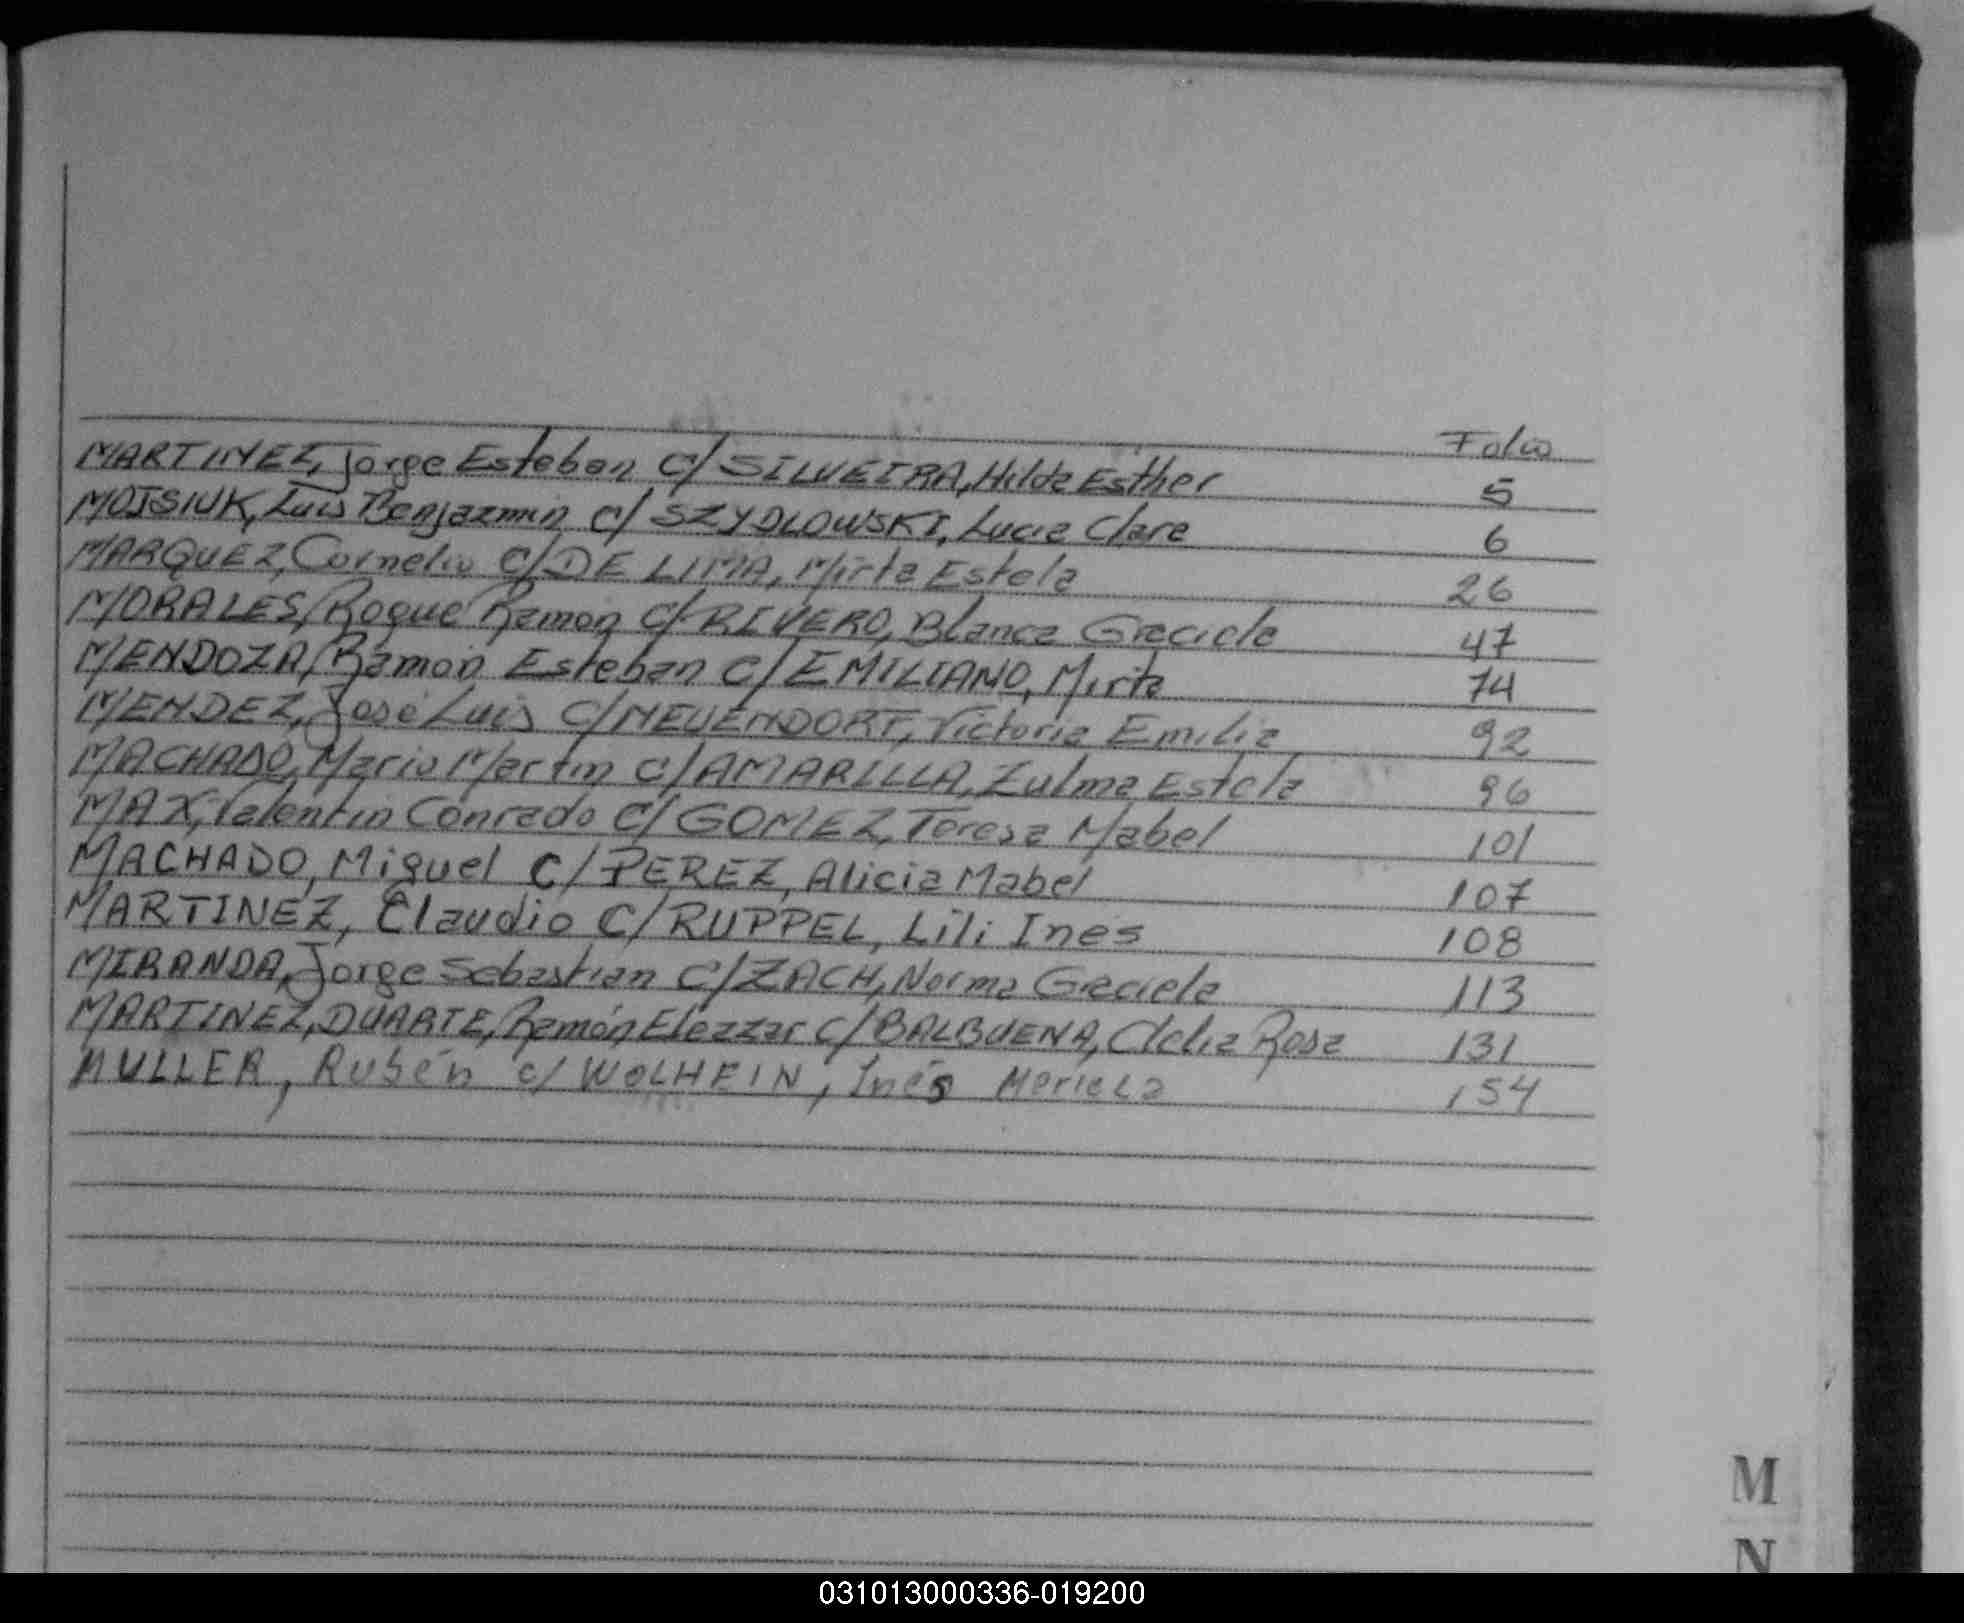 Folio
MARTINEZ, Jorge Esteban c/ SILVEIRA, Hilda Esther 5
MOJSIUK, Luis Benjazmin c/ SZYDLOWSKI, Lucia Clara 6
MARQUEZ, Cornelio c/ DE LIMA, Mirta Estela 26
MORALES, Roque Ramon c/ RIVERO, Blanca Graciela 47
MENDOZA, Ramón Esteban c/ EMILIANO, Mirta 74
MENDEZ, José Luis c/ NEUENDORT, Victoria Emilia 92
MACHADO, Mario Martin c/ AMARILLA, Zulma Estela 96
MAX, Valentin Conrado c/ GOMEZ, Teresa Mabel 101
MACHADO, Miguel c/ PEREZ, Alicia Mabel 107
MARTINEZ, Claudio c/ RUPPEL, Lili Inés 108
MIRANDA, Jorge Sebastian c/ ZACH, Norma Graciela 113
MARTINEZ, DUARTE, Ramón Eleazar c/ BALBUENA, Clelia Rosa 131
MULLER, Rubén c/ WOLHEIN, Inés Mariela 154
M
N
031013000336-019200